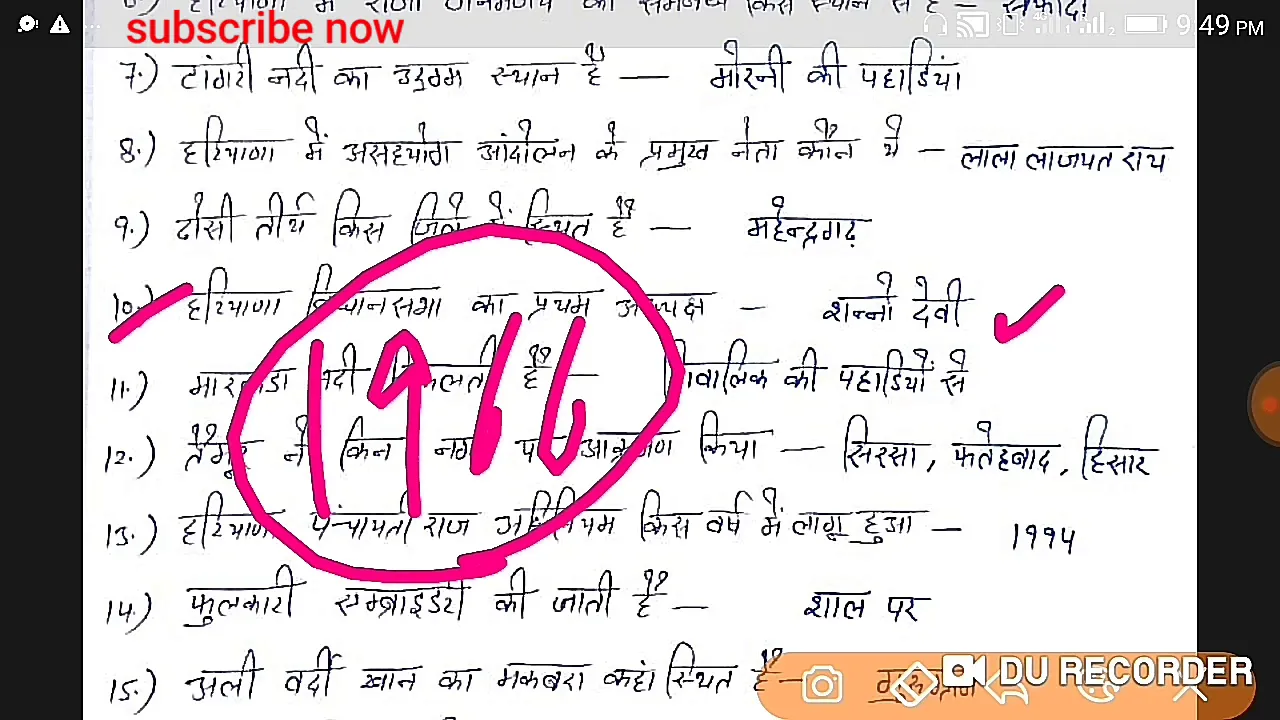 6.) हरियाणा में राजा जनमेजय का सम्बन्ध किस स्थान से है – सफीदों
subscribe now
9:49 PM
7.) टांगरी नदी का उद्गम स्थान है — मोरनी की पहाडियां
8.) हरियाणा में असहयोग आंदोलन के प्रमुख नेता कौन थे – लाला लाजपत राय
9.) ढोसी तीर्थ किस जिले में स्थित है — महेन्द्रगढ़
10.) हरियाणा विधानसभा का प्रथम अध्यक्ष – शन्नो देवी
1966
11.) मारकंडा नदी निकलती है — शिवालिक की पहाडियों से
12.) तैमूर ने किन नगरों पर आक्रमण किया — सिरसा, फतेहबाद, हिसार
13.) हरियाणा पंचायती राज अधिनियम किस वर्ष में लागू हुआ – 1994
14.) फुलकारी एम्ब्राइडरी की जाती है — शाल पर
15.) अली वर्दी खान का मकबरा कहां स्थित है –
DU RECORDER